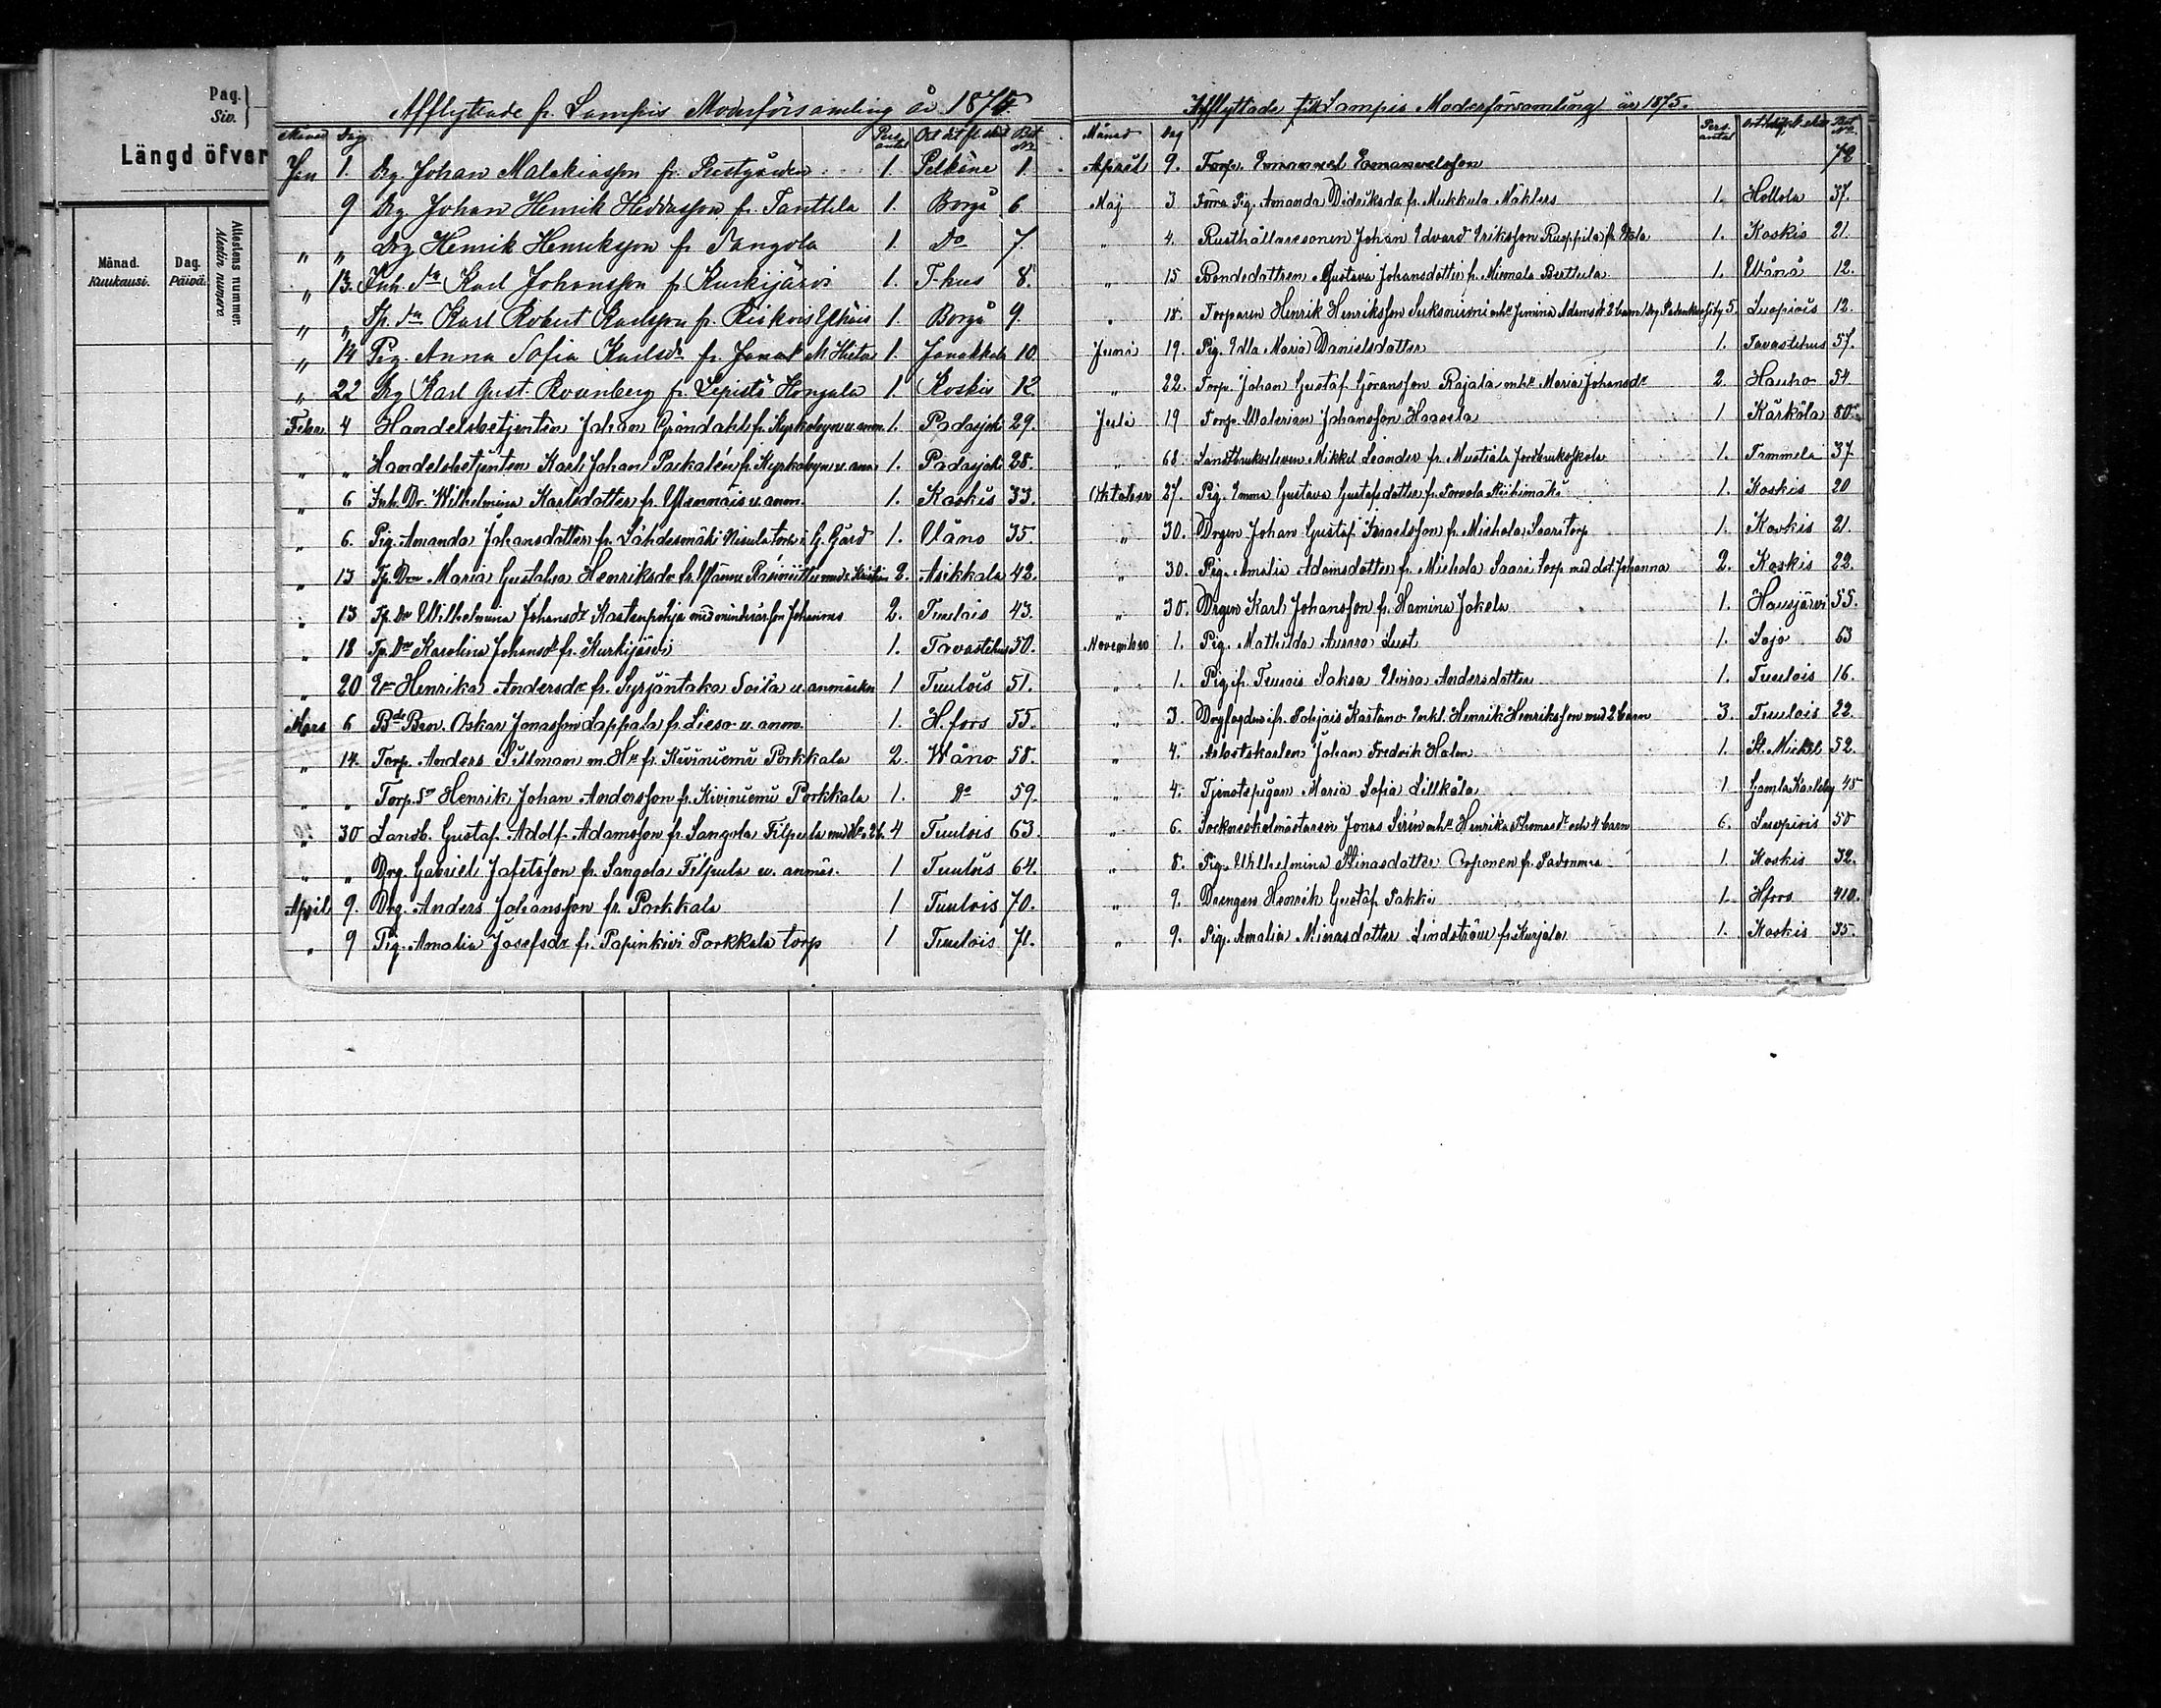 Pag.
Siv.
Längd öfver
Månad.
Kuukausi.
Dag.
Päivä.
Attestens nummer.
Afflyttade fr. Lampis Moderförsamling år 1875.
Månad Dag Pers. antal Bet N:o
Jan 1. Drg Johan Malakiasson fr. Prestgården 1. Pelkäne 1.
9 Drg Johan Henrik fr. Tanttila 1. Borgå 6.
" " Drg Henrik Henriksson fr. Sangola 1. Do 7.
" 13. Inh. Sn Karl Johansson fr. Kurkijärvi 1. T-hus 8.
" " Tp. Sn Karl Robert Karlsson fr. 1. Borgå 9.
" 14 Pig. Anna Sofia Karlsdr fr. 1. Janakkala 10.
" 22 Drg Karl Gust. Rosenberg fr. Lepistö Hongala 1. Koskis 12
Febr 4 Handelsbetjenten Johan Gröndahl fr. Kyrkobyn u. anm. 1. Padasjoki 29.
" " Handelsbetjenten Karl Johan fr. Kyrkobyn u. anm. 1. Padasjoki 28.
" 6 Inh. Dr. Wilhelmina Karlsdotter fr. u. anm. 1. Koskis 33.
" 6. Pig. Amanda Johansdotter fr. Lähdesmäki torp i G. Gård 1. Wånå 35.
" 13 Tp. Dr Maria Gustafva Henriksdr fr. 2. Asikkala 42.
" 13 Tp. Dr Wilhelmina Johansdr med Johannes 2. Tuulois 43.
" 18 Tp. Dr Karolina Johansdr fr. Kurkijärvi 1. Tavastehus 50.
" 20 Henrika Andersdr fr. Syrjäntaka Soita u. anmärkn 1 Tuulois 51.
Mars 6 Oskar Jonasson Lappala fr. Lieso u. anm. 1. H.fors 55.
" 14. Torp. Anders Sillman m. Hu fr. Kiviniemi Porkkala 2. Wåno 58.
" " Torp. Sn Henrik Johan Andersson fr. Kiviniemi Porkkala 1. Do 59.
" 30 Gustaf Adolf Adamsson fr. Sangola Filpula 4 Tuulois 63.
" " Drg. Gabriel Jafetsson fr. Sangola Filpula u. anmär. 1 Tuulois 64.
April 9. Drg. Anders Johansson fr. Porkkala 1 Tuulois 70.
" 9 Pig. Amalia Josefsdr fr. Papinkivi Porkkala torp 1 Tuulois 71.
Inflyttade till Lampis Moderförsamling år 1875.
Månad Dag Pers. antal N:o
April 9. Torp. Emanuel Emanuelsson 72
Maj 3 Förra Pig. Amanda Didriksdr fr. Mukkula Mäklers 1. Hollola 37.
" 4. Rusthållaresonen Johan Edvard Eriksson fr. 1. Koskis 21.
" 15 Bondedottren Gustava Johansdotter fr. 1. Wånå 12.
" 18. Torparen Henrik Henriksson och Adamsdr 2 barn 5. Luopiois 12.
Juni 19. Pig. Edla Maria Danielsdotter 1. Tavastehus 57.
" 22. Torp. Johan Gustaf Göransson Rajala Maria Johansdr 2. Hauho 54.
Juli 19 Torp. Walerian Johansson 1 Kärkölä 80.
" 68. Mikkel Leander fr. Mustiala Jordbruksskola 1. Tammela 37
Oktober 27. Pig. Emma Gustava Gustafsdotter fr. Riihimäki 1. Koskis 20
" 30. Drgen Johan Gustaf Israelsson fr. Saari torp 1. Koskis 21.
" 30. Pig. Amalia Adamsdotter fr. Saari torp med dot. Johanna 2. Koskis 22.
" 30. Drgen Karl Johansson fr. Hamina Jokela 1. Hausjärvi 55.
November 1. Pig. Mathilda Aurora Lust 1. Lojo 63
" 1. Pig. Elvira Andersdotter 1. Tuulois 16.
" 3. Henrik Henriksson med 2 barn 3. Tuulois 22.
" 4. Arbetskarlen Johan Fredrik Holm 1. St. Mickel 52.
" 4. Tjenstepigan Maria Sofia Lillkåla 1 Gamla Karleby 45
" 6. Sockneskolmästaren Jonas Sirén Henrika Thomasdr och 4 barn 6. Luopiois 50
" 8. Pig. Wilhelmina 1. Koskis 32.
" 9. Drengen Henrik Gustaf Pakki 1. Hfors 410.
" 9. Pig. Amalia Lindström fr. Kurjala 1. Koskis 35.